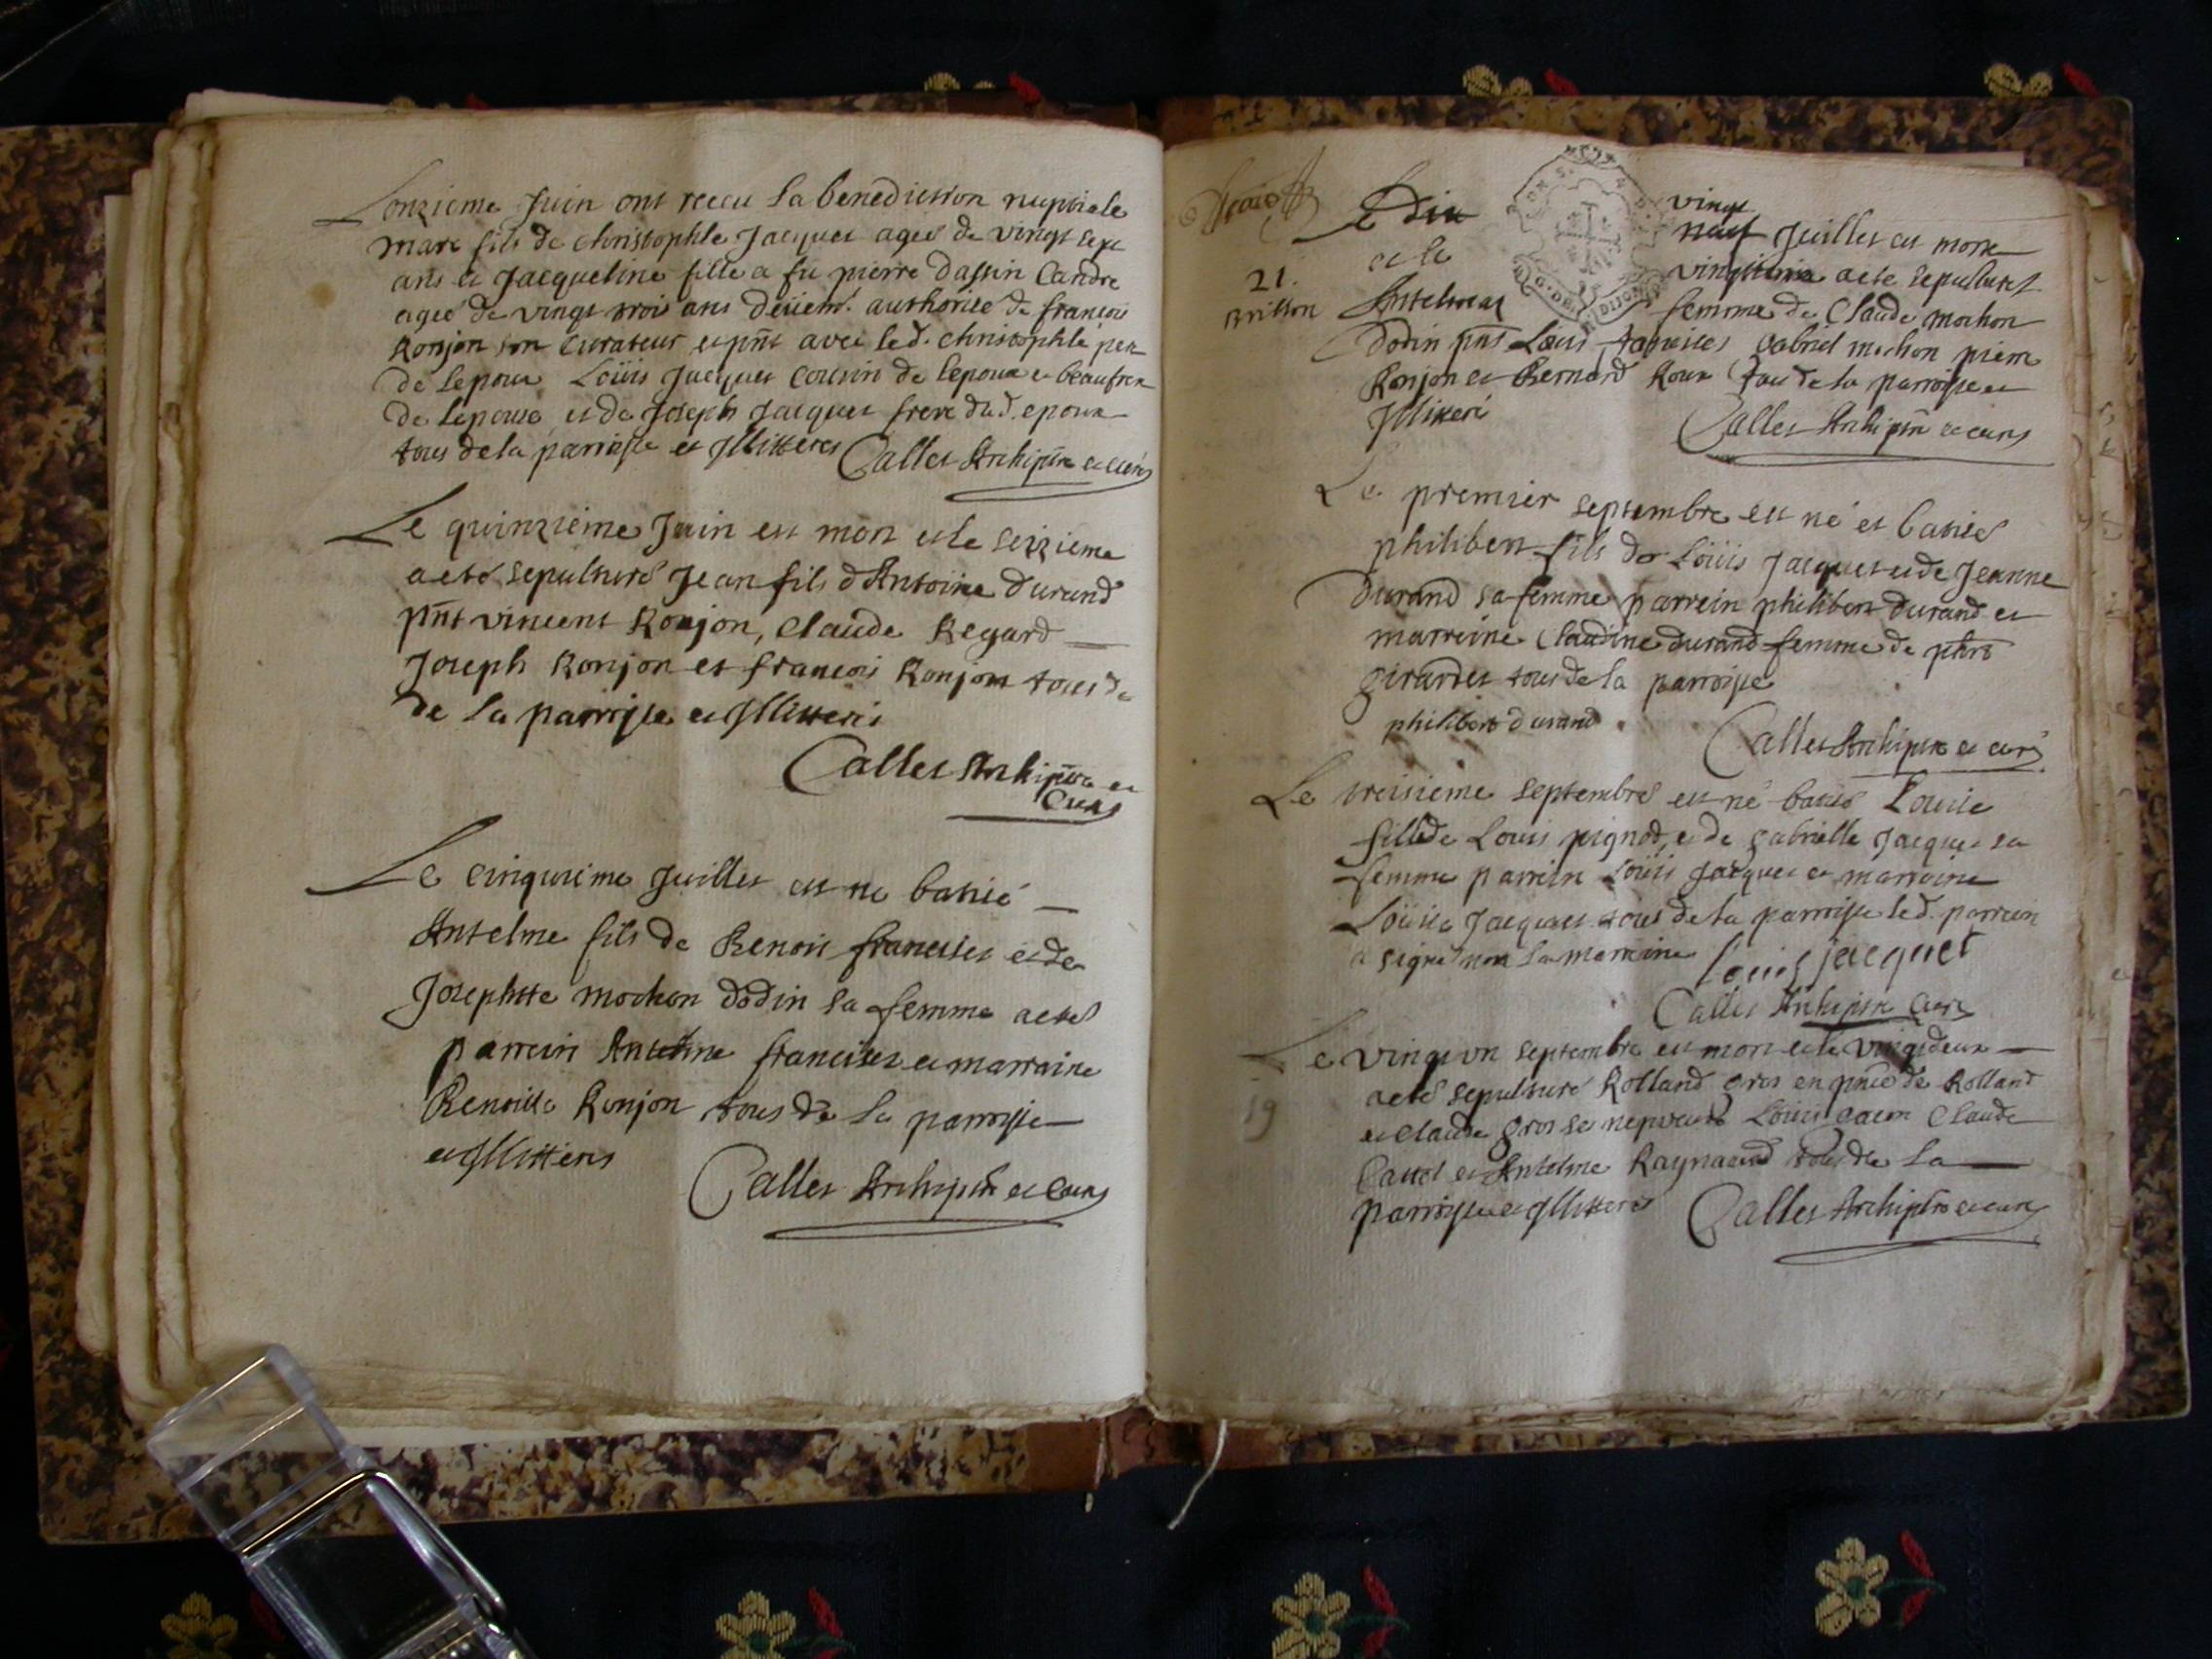 Lonzieme Juin ont receu la benediction nuptiale
marc fils de christophle Jacquet ageé de vingt sept
ans et Jacqueline fille a fû pierre dassin Candre
ageé de vingt trois ans deüem.t authorisé de francois
Ronjon son Curateur et pnt avec led. christophle pere
de lepoux Loüis Jacquet cousin de lepoux et beaufrere
de lepouse et de Joseph Jacquet frere dud. epoux
tous de la parroisse et Illitteres Callet Archiptre et curé
Le quinzieme Juin est mort et le seizieme
a eté sepulturé Jean fils d'Antoine durand
pnt vincent Ronjon, Claude Regard
Joseph Ronjon et francois Ronjon tous de
de la parroisse et Illitterés
Callet Archiptre et
Curé
Le cinquieme Juillet est né batisé
Antelme fils de Benoit francillet et de
Josephtte mochon dodin sa femme a eté
parrein Antelme francillet et marraine
Benoitte Ronjon tous de la parroisse
et Illitterés
Callet Archiptre et Curé
Le dix vingt
neuf Juillet est morte
21. et le vingtieme a eté sepulturé
Antelmaz femme de Claude mochon
dodin pnt Loüis gabriel mochon pierre
Ronjon et Bernard Roux tous de la parroisse et
Illitteré
Callet Archiptre et curé
Le premier septembre est né et batisé
philibert fils de Loüis Jacquet et de Jeanne
durand sa femme parrein philibert durand et
marreine Claudine durand femme de
girardet tous de la parroisse
philibert durand
Callet Archiptre et curé
Le troisieme septembre est né batisé Louise
fille de Louis pignod, et de gabrielle Jacquet sa
femme parrein Loüis Jacquet et marraine
Loüise Jacquet tous de la parroisse led. parrein
a signé non la marreine Louis jacquet
Callet Archiptre Curé
Le vingt un septembre est mort et le vingt deux
a eté sepulturé Rolland gros en pnce de Rolland
19
et claude gros se nepveus Louis Claude
et Antelme Raynaud tous de la
parroisse et Illitterés Callet Archiptre et curé